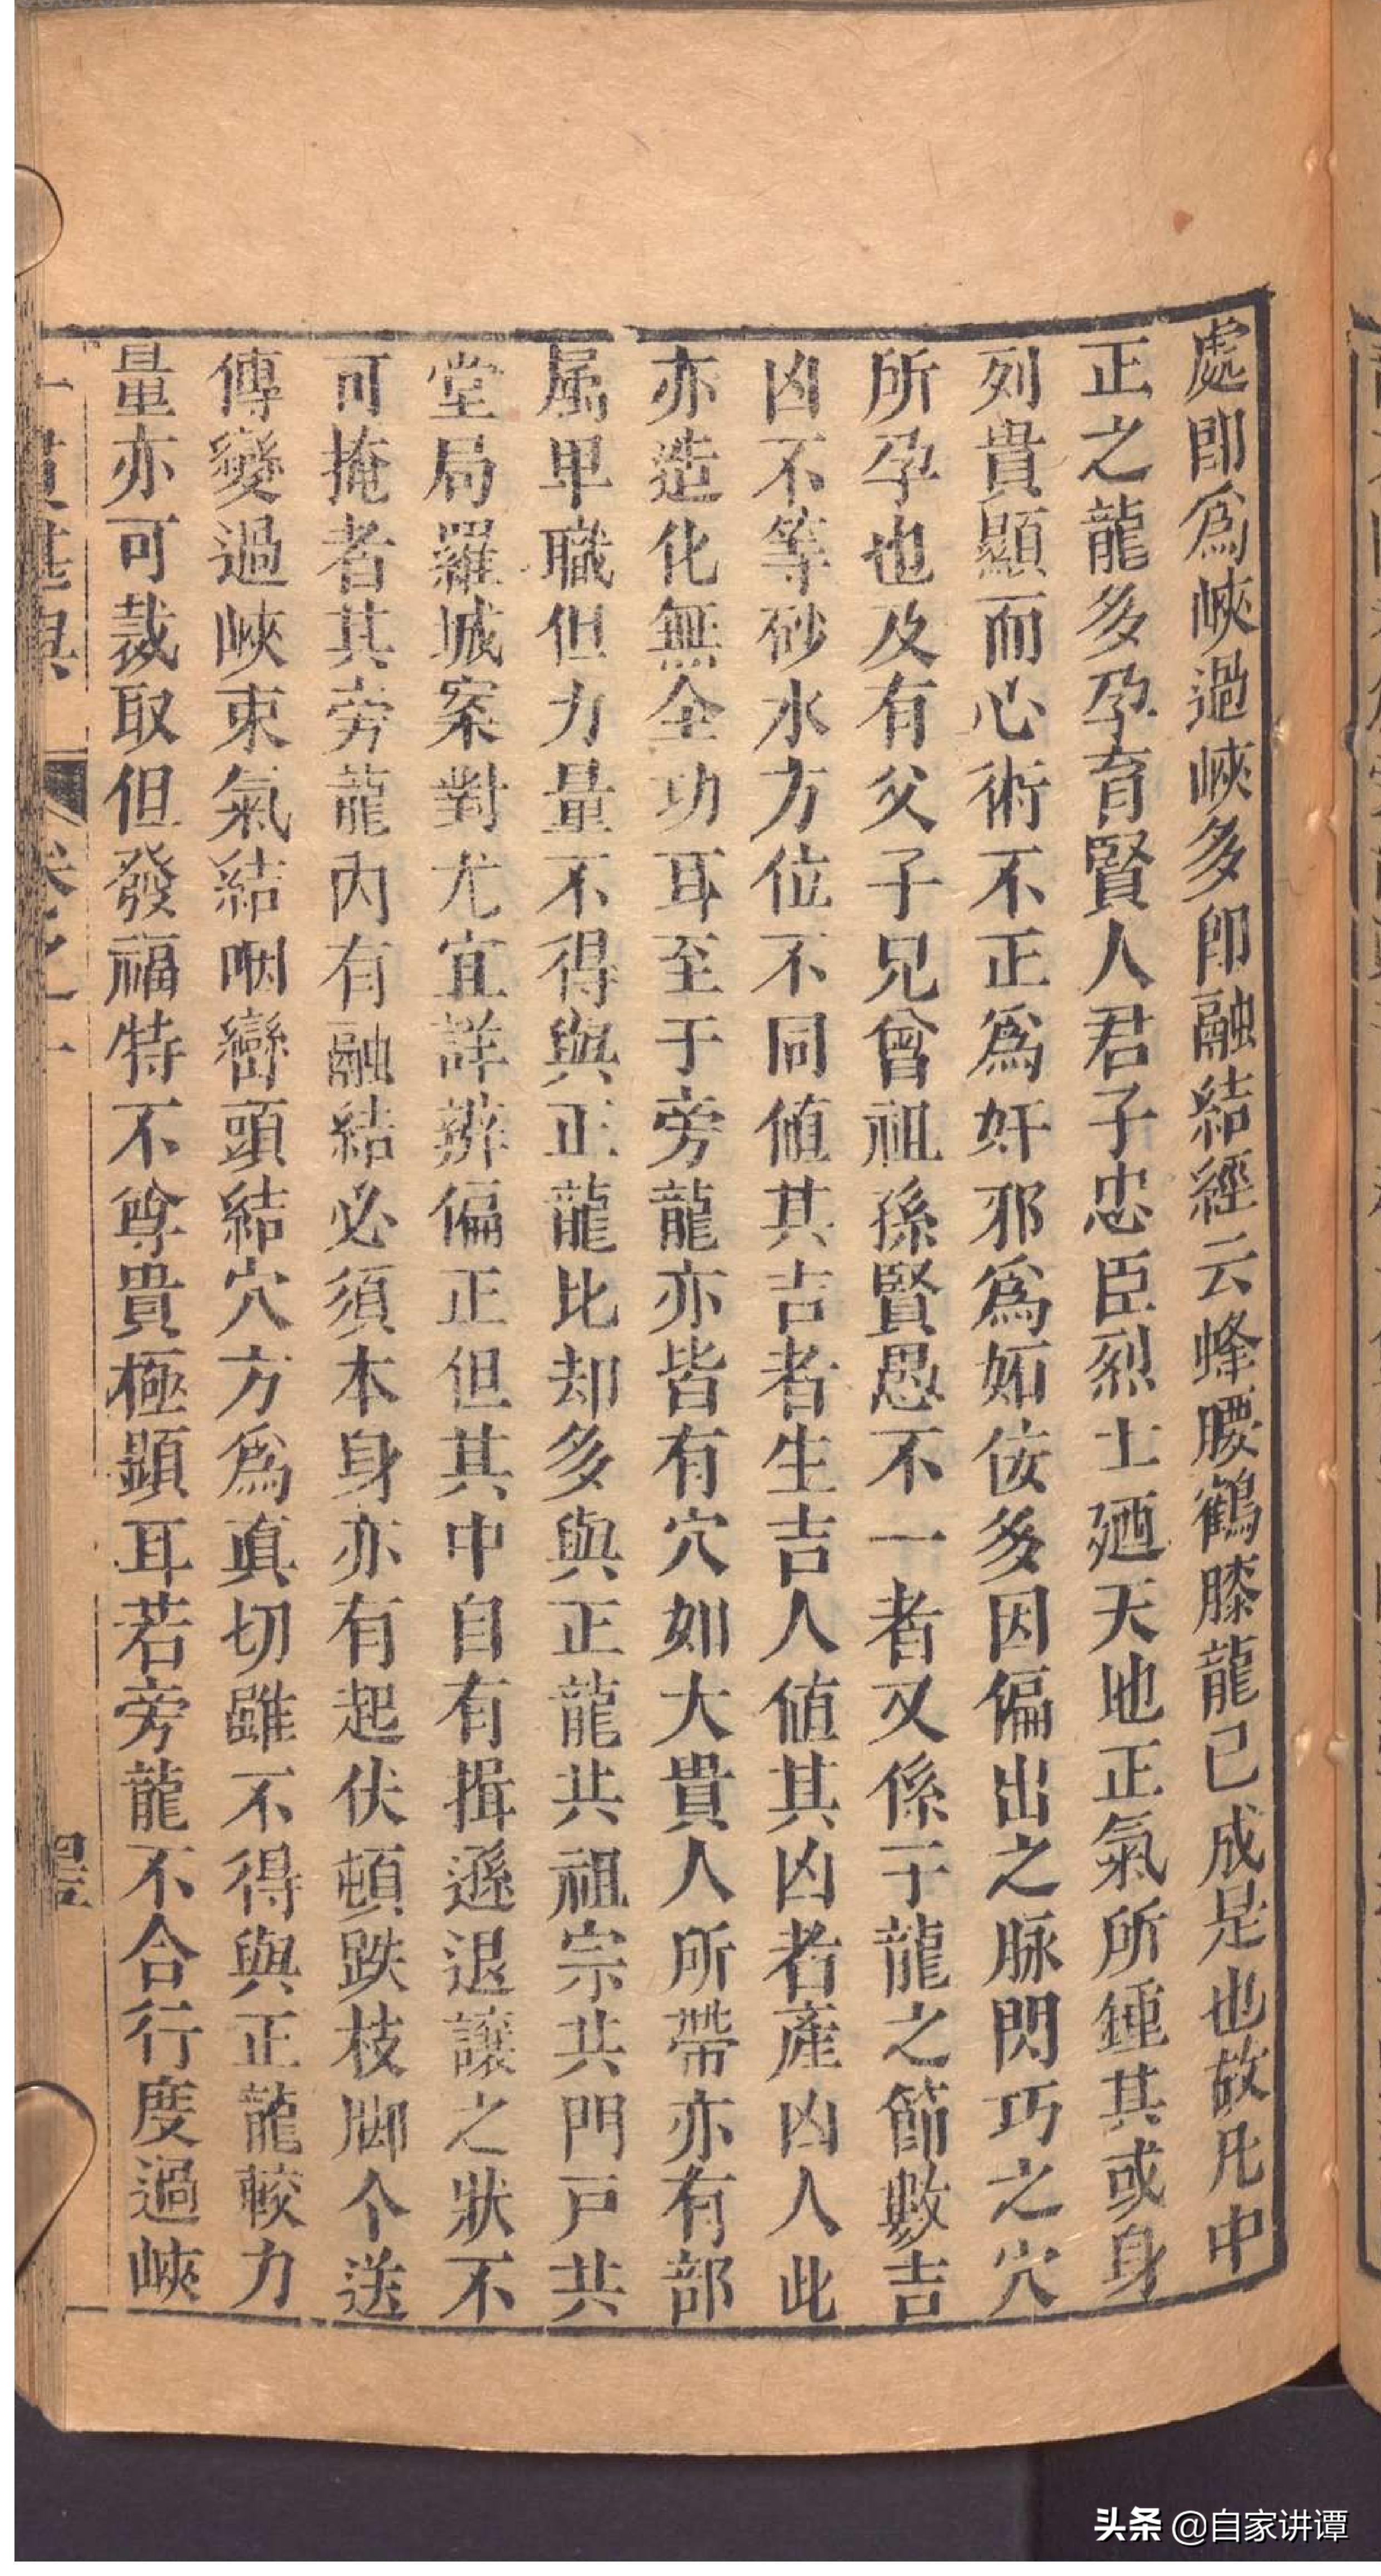 處即爲峽過峽多即融結經云蜂腰鶴膝龍已成是也故凡中
正之龍多孕育賢人君子忠臣烈士廼天地正氣所鍾其或身
列貴顯而心術不正爲奸邪爲妬佞多因偏出之脉閃巧之穴
所孕也及有父子兄曾祖孫賢愚不一者又係于龍之節數吉
凶不等砂水方位不同値其吉者生吉人値其凶者產凶人此
亦造化無全功耳至于旁龍亦皆有穴如大貴人所帶亦有部
属卑職但力量不得與正龍比却多與正龍共祖宗共門戸共
堂局羅城案對尤宜詳辨偏正但其中自有揖遜退讓之狀不
可掩者其旁龍内有融結必須本身亦有起伏頓跌枝脚个送
傳變過峽束氣結咽巒頭結穴方爲眞切雖不得與正龍較力
量亦可裁取但發福特不尊貴極顯耳若旁龍不合行度過峽
卷之一
頭条 @自家讲谭